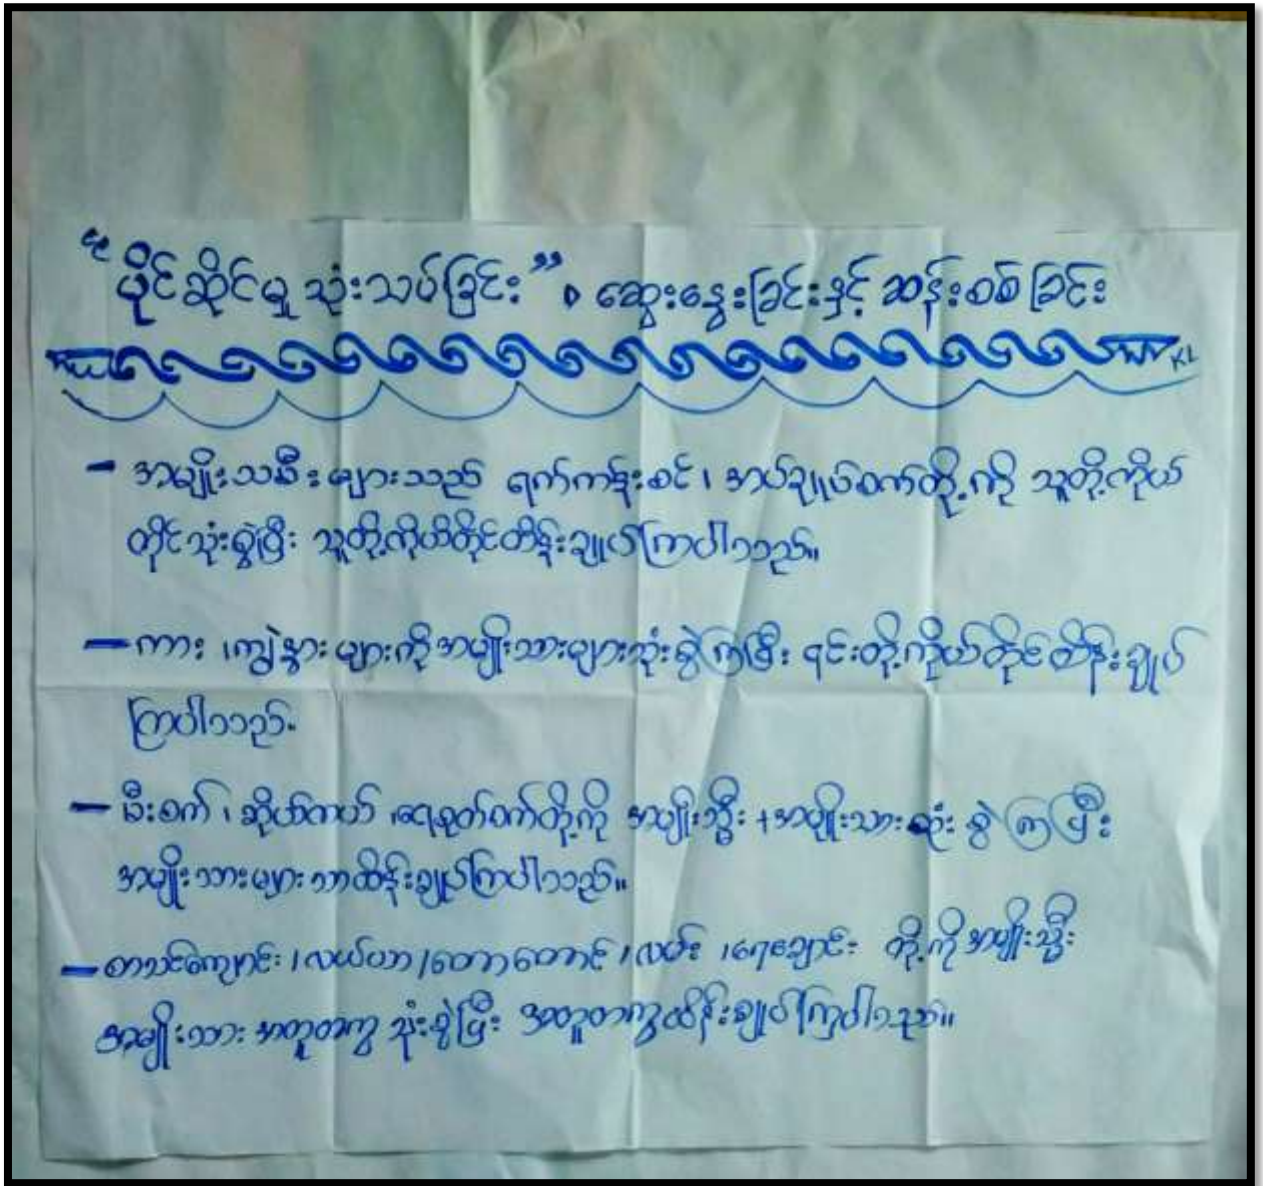 “ပိုင်ဆိုင်မှု သုံးသပ်ခြင်း” ၊ ဆွေးနွေးခြင်းနှင့် ဆန်းစစ်ခြင်း
KL
- အမျိုးသမီးများသည် ရက်ကန်းစင် ၊ အပ်ချုပ်စက်တို့ကို သူတို့ကိုယ်
တိုင်သုံးစွဲပြီး သူတို့ကိုယ်တိုင်ထိန်းချုပ်ကြပါသည်။
- ကား ၊ကျွဲနွားများကို အမျိုးသားများသုံးစွဲကြပြီး ၎င်းတို့ကိုယ်တိုင်ထိန်းချုပ်
ကြပါသည်။
- မီးစက် ၊ ဆိုင်ကယ် ၊ရေစုတ်စက်တို့ကို အမျိုးသ္မီး + အမျိုးသား သုံးစွဲကြပြီး
အမျိုးသားများသာထိန်းချုပ်ကြပါသည်။
- စာသင်ကျောင်း ၊လယ်ယာ ၊တောတောင် ၊လမ်း ၊ရေချောင်း တို့ကို အမျိုးသ္မီး
အမျိုးသား အတူတကွ သုံးစွဲပြီး အတူတကွထိန်းချုပ်ကြပါသည်။